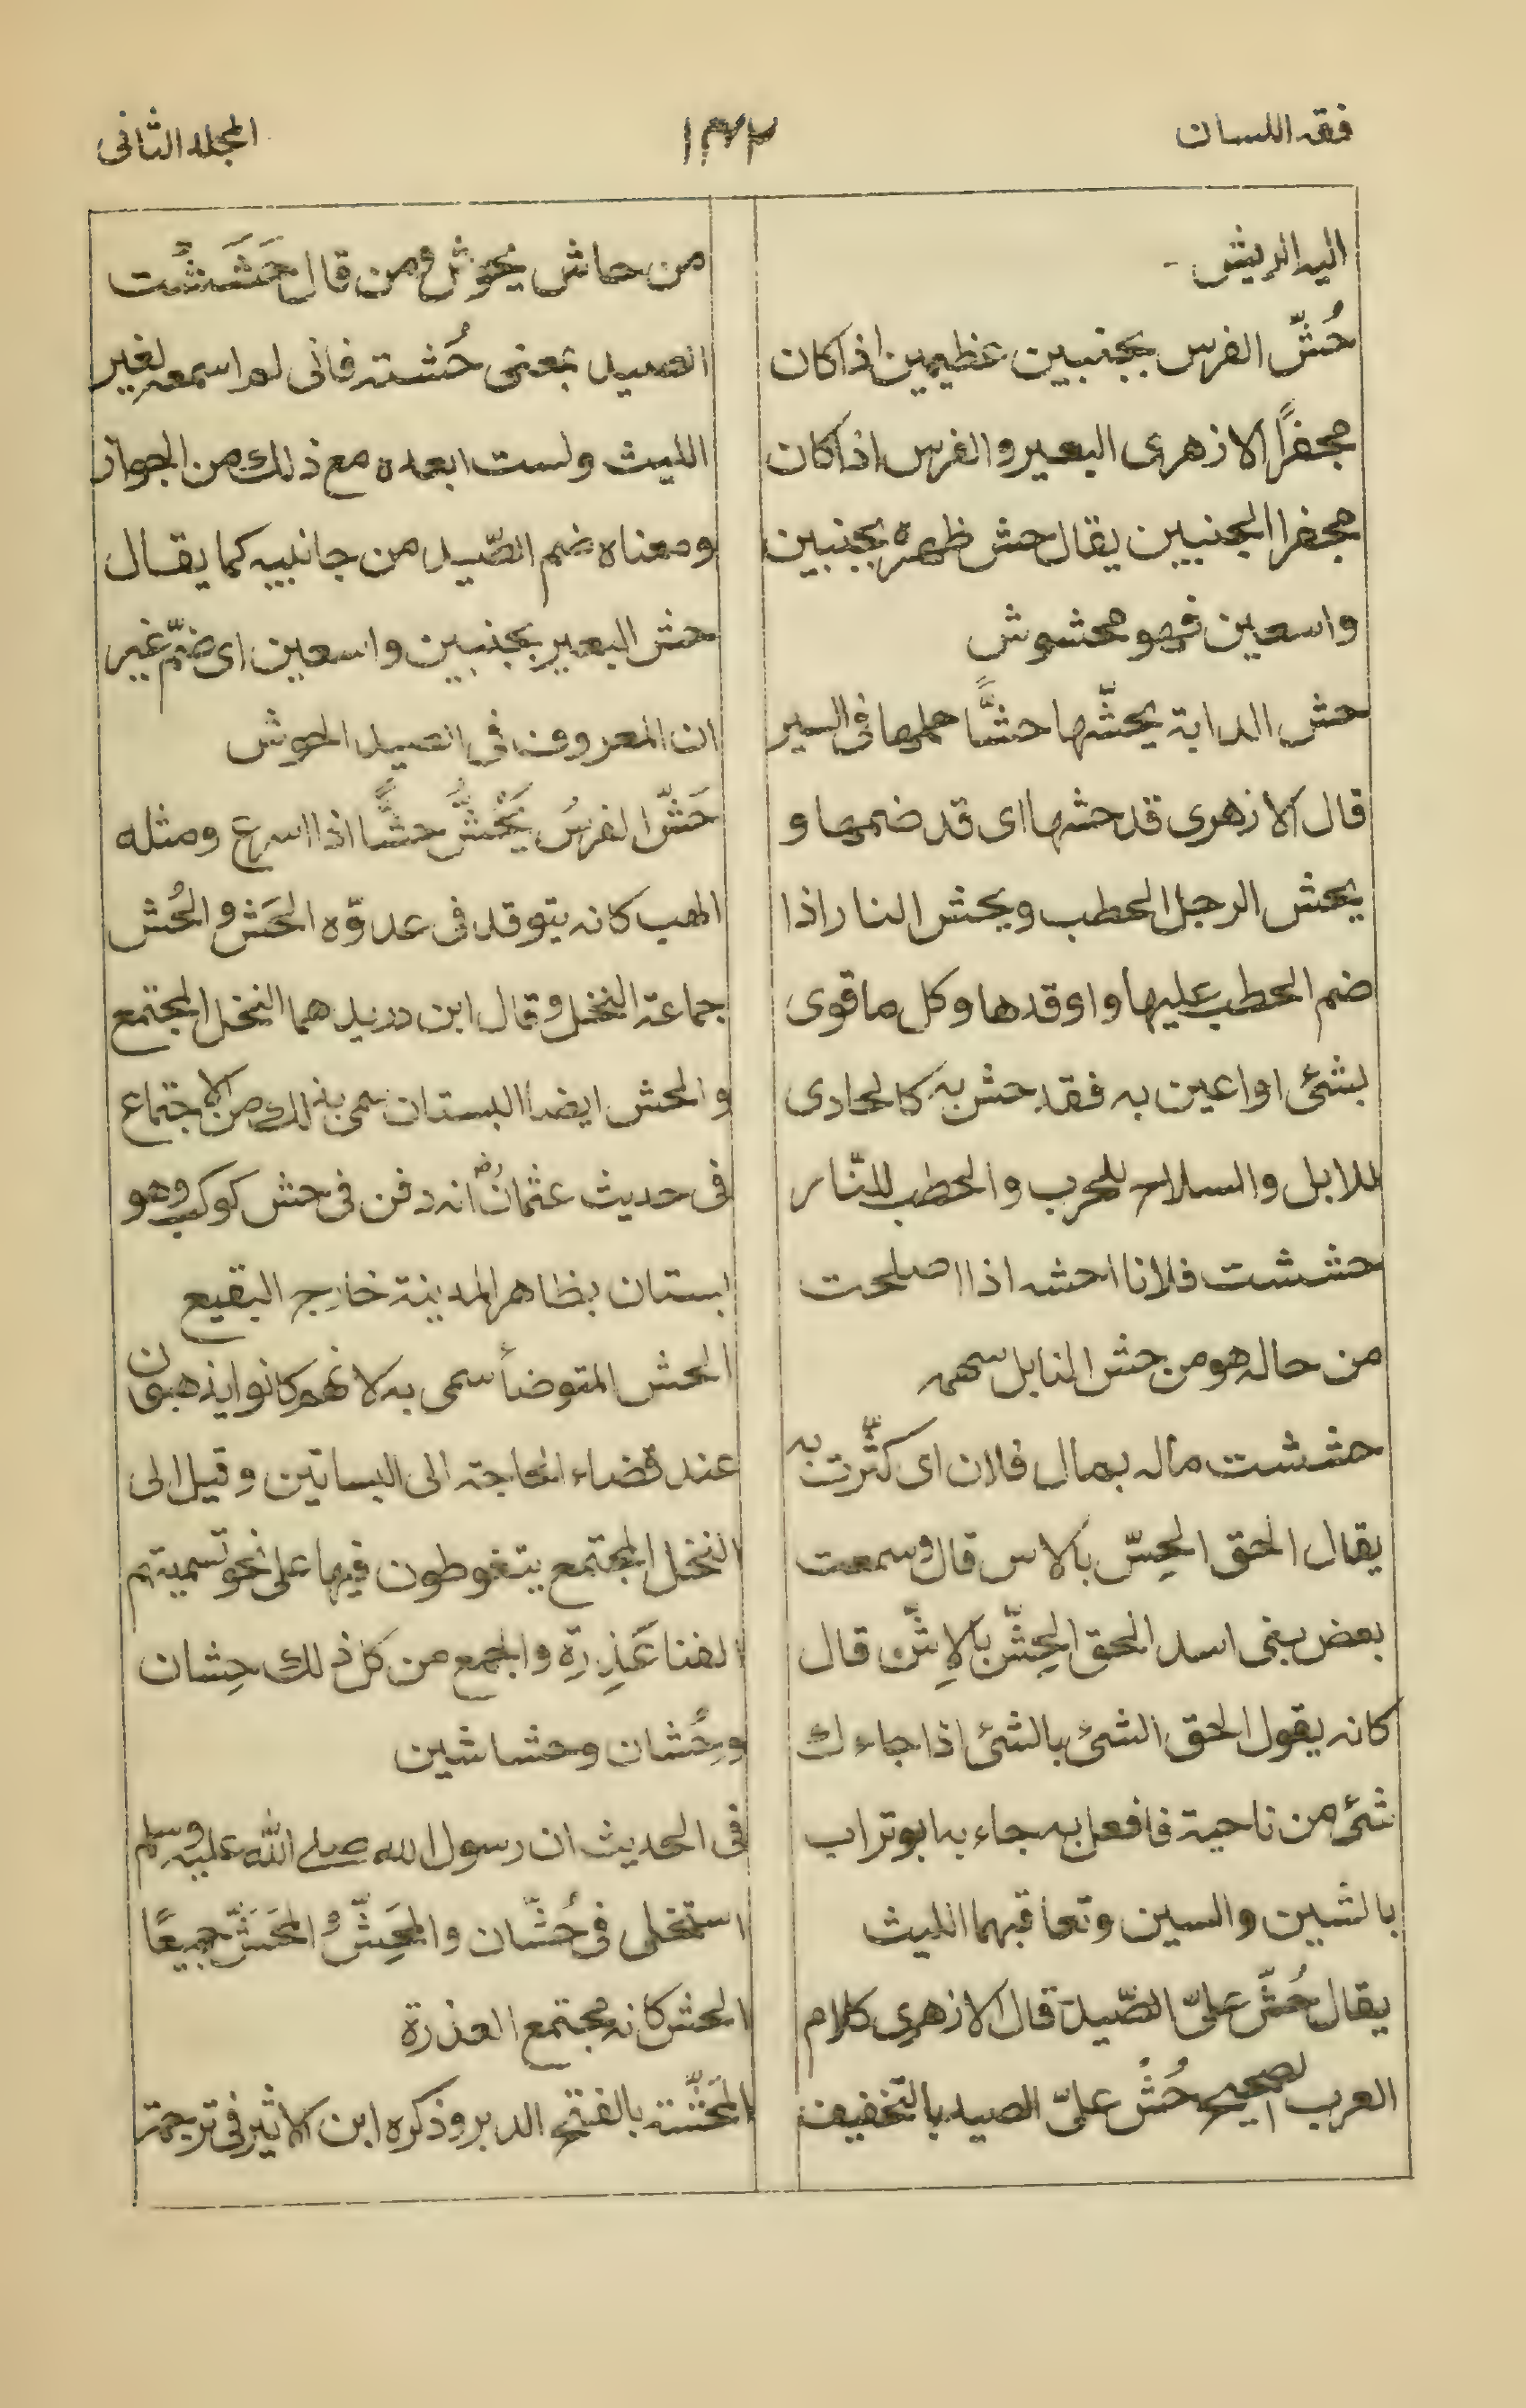 فقه اللسان
١٣٢
المجلد الثانی
الیه الریش -
حُشّ الفرس بجنبین عظیمین اذا کان
مجفراً الازهری البعیر والفرس اذا کان
مجفرا الجنبین یقال حش ظهره بجنبین
واسعین فهو محشوش
حش الدابة یحشّها حشًّا حملها فی السیر
قال الازهری قد حشها ای قد ضمها و
یحش الرجل الحطب ویحش النار اذا
ضم الحطب علیها واوقدها وکل ما قوی
بشئ او اعین به فقد حش به کالحادی
للابل والسلاح للحرب والحطب للنّار
حششت فلانا احشه اذا اصلحت
من حاله هو من حش النابل سهمه
حششت ماله بمال فلان ای کثّرت به
یقال الحق الحِسّ بالاس قال وسمعت
بعض بنی اسد الحق الحِشّ بالاِشّ قال
کانه یقول الحق الشئ بالشئ اذا جاءك
شئ من ناحیة فافعل به جاء به ابوتراب
بالشین والسین وتعاقبهما اللیث
یقال حُشّ علیّ الصّید قال الازهری کلام
العرب الصحیح حُشْ علیّ الصید بالتخفیف
من حاش یحوش ومن قال حَشَشْت
الصید بمعنی حُشته فانی لم اسمعه لغیر
اللیث ولست ابعده مع ذلك من الجواز
ومعناه ضم الصّید من جانبیه کما یقال
حش البعیر بجنبین واسعین ای ضمّ غیر
ان المعروف فی الصید الحوش
حَشّ الفرسُ یَحُشُّ حشًّا اذا اسرع ومثله
الهب کانه یتوقد فی عدوّه الحَش والحُش
جماعة النخل وقال ابن درید هما النخل المجتمع
والحش ایضا البستان سمی بذلك من الاجتماع
فی حدیث عثمانؓ انه دفن فی حش کوکب وهو
بستان بظاهر المدینة خارج البقیع
الحش المتوضأ سمی به لانهم کانوا یذهبون
عند قضاء الحاجة الی البساتین وقیل الی
النخل المجتمع یتغوطون فیها علی نحو تسمیتهم
الفنا عَذِرة والجمع من کل ذلك حِشان
وحُشان وحشاشین
فی الحدیث ان رسول الله صلے الله علیه وسلم
استخلی فی حُشّان والمَحِشّ والمَحَشّ جمیعًا
الحش کانه مجتمع العذرة
المَحَشّة بالفتح الدبر وذکره ابن الاثیر فی ترجمة